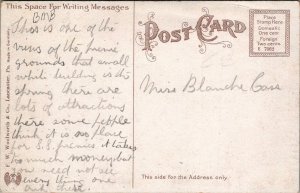 This Space For Writing Messages
POST CARD
Place
Stamp Here
Domestic
One cent
Foreign
Two cents
This is one of the
views of the picnic
grounds that small
white building is the
spring there are
lots of attractions
there some people
think it is no place
for S.S. picnics it takes
to much money but
you need not see
every thing one
Miss Blanche
F. W. Woolworth & Co., Lancaster, Pa.
This side for the Address only.